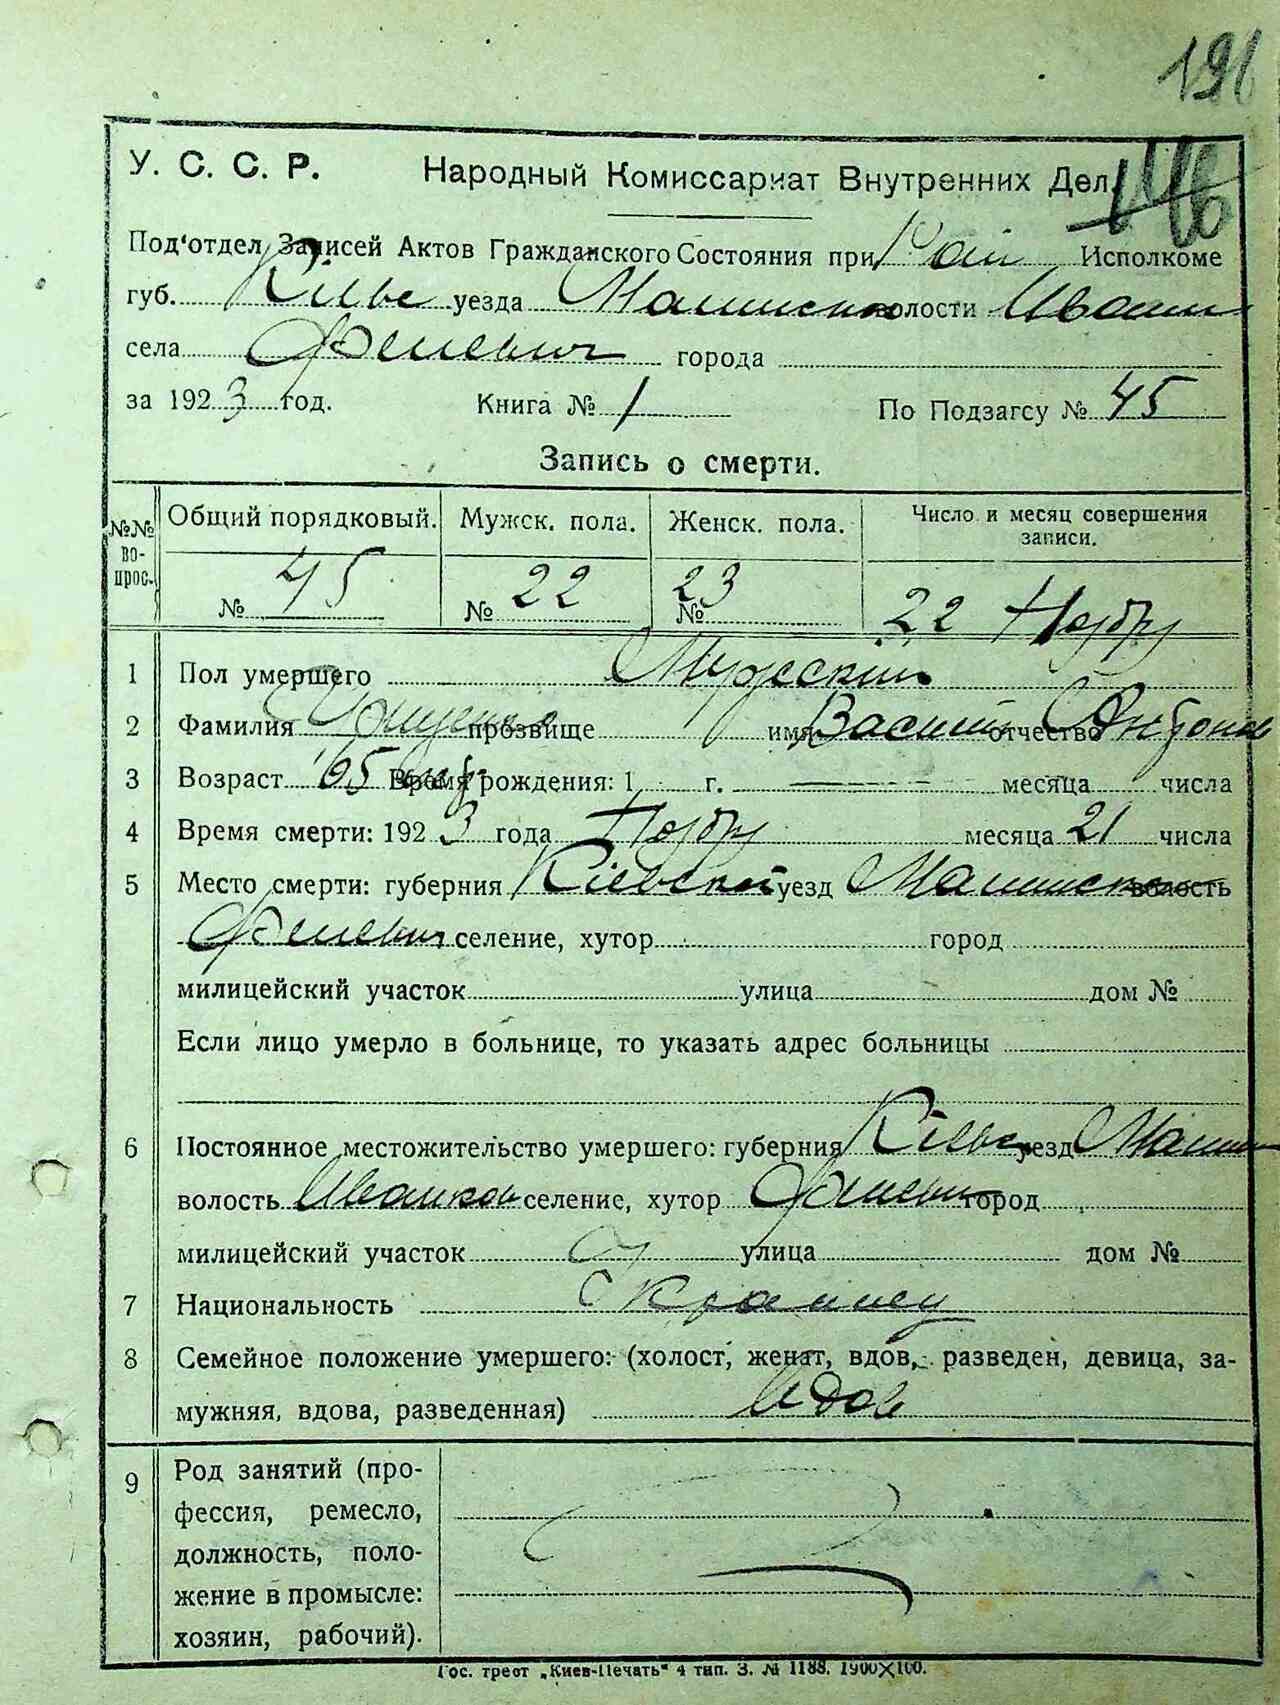 191
146
У. С. С. Р. Народный Комиссариат Внутренних Дел.
Под'отдел Записей Актов Гражданского Состояния при Рай Исполкоме
губ. Киевс уезда Малинско волости Иванк
села города
за 1923 год. Книга № 1 По Подзагсу № 45
Запись о смерти.
№№ во-прос. Общий порядковый. Мужск. пола. Женск. пола. Число и месяц совершения записи.
№ 45 № 22 № 23 22 Ноябр
1 Пол умершего Мужский
2 Фамилия прозвище имя Василий отчество Антонов
3 Возраст 65 Время рождения: 1 г. месяца числа
4 Время смерти: 1923 года Ноябр месяца 21 числа
5 Место смерти: губерния Кіевской уезд Малинско волость
селение, хутор город
милицейский участок улица дом №
Если лицо умерло в больнице, то указать адрес больницы
6 Постоянное местожительство умершего: губерния Кіевс уезд Малин
волость Иванков селение, хутор город
милицейский участок улица дом №
7 Национальность Украинец
8 Семейное положение умершего: (холост, женат, вдов, разведен, девица, за-
мужняя, вдова, разведенная) Вдов
9 Род занятий (про-
фессия, ремесло,
должность, поло-
жение в промысле:
хозяин, рабочий).
Гос. трест „Киев-Печать“ 4 тип. З. № 1188. 1900×100.